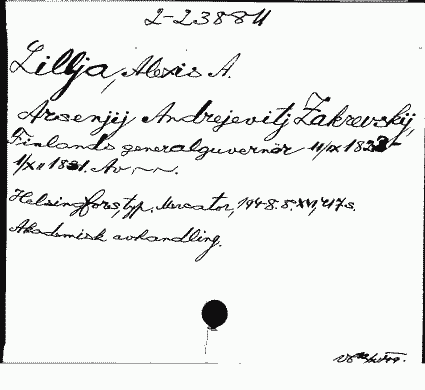 2-23884
Lillja, Alexis A.
Arsenjij Andrejevitj Zakrevskij,
Finlands generalguvernör 11/IX 1823-
1/XII 1831. Av
Helsingfors, typ. Mercator, 1948. 8. XVI, 417 s.
Akademisk avhandling.